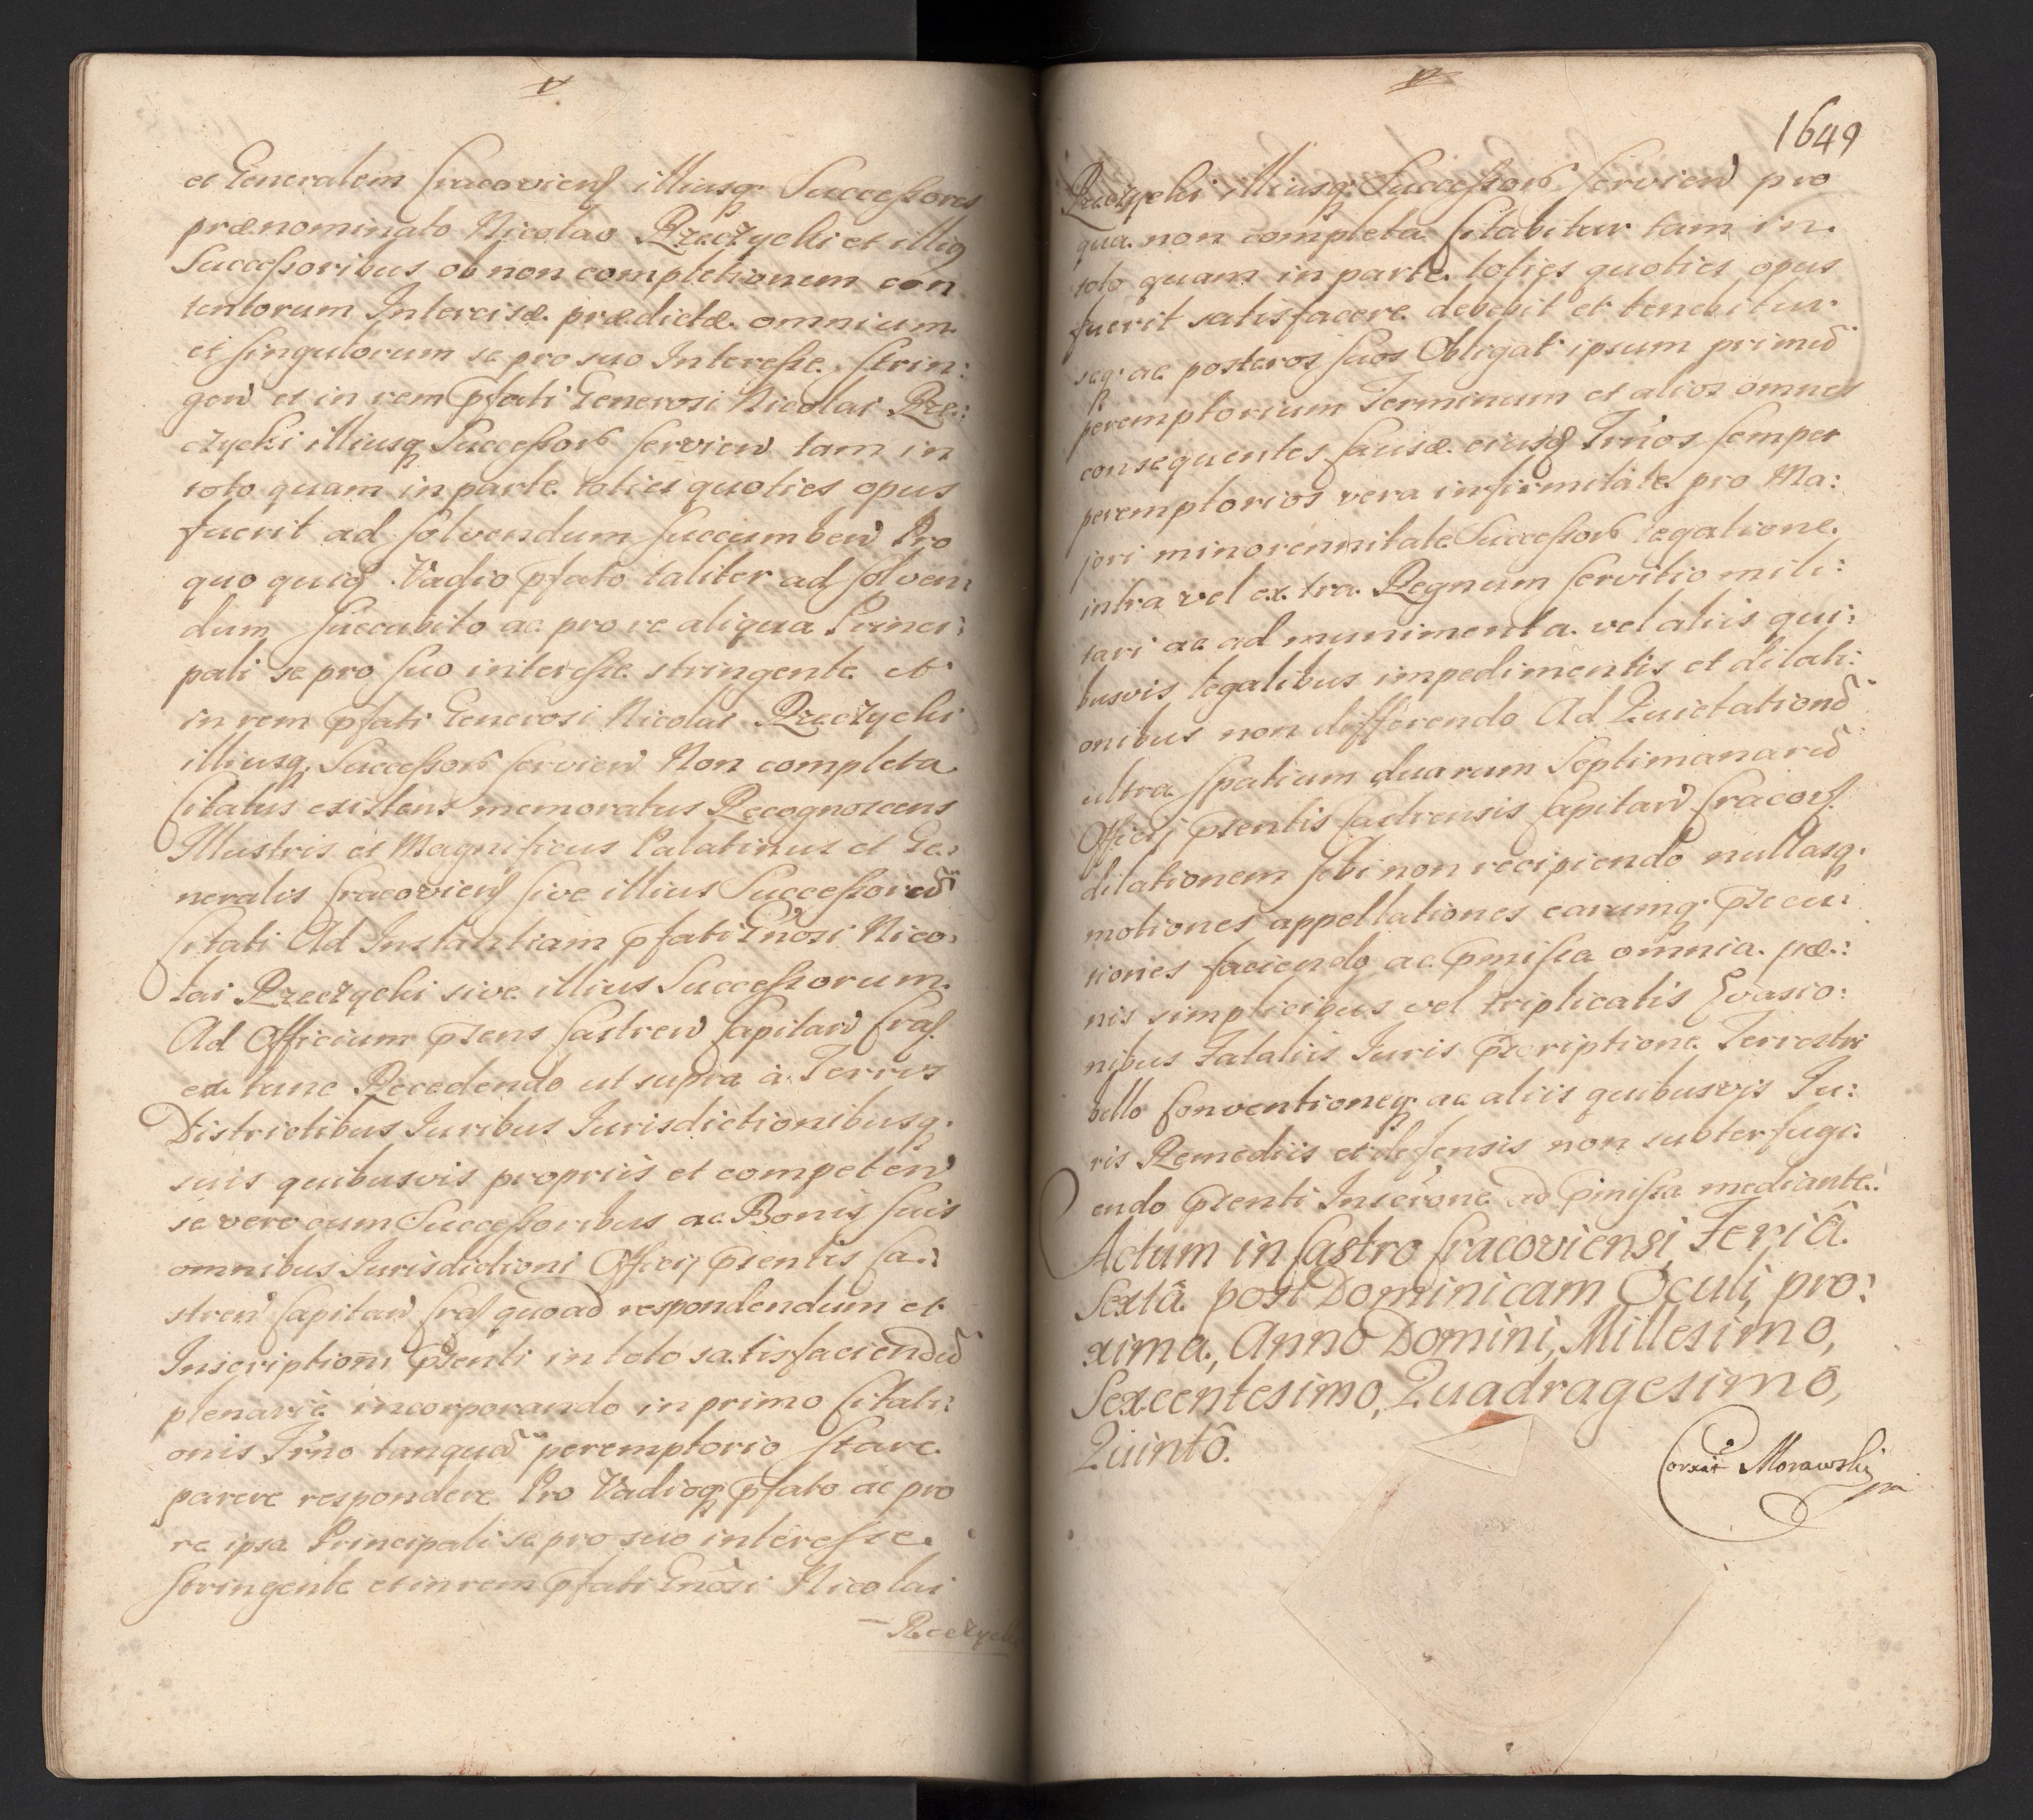 et Generalem Cracovienſ illiusq; Succeſsores
prænominato Nicolao Rzeczycki et illiq
Succeſsoribus ob non completionem con
tentorum Intercisæ prædictæ omnium
et ſingulorum se pro suo Intereſse ſtrin:
gen et in rem pfati Generosi Nicolai Rze:
czycki illiusq Succeſsor ſervien tam in
toto quam in parte toties quoties opus
fuerit ad ſolvendum ſuccumben Pro
quo quiq Vadio pfato taliter ad ſolven:
dum ſuccubito ac pro re aliqua Princi:
pali se pro ſuo intereſse stringente et
in rem pfati Generosi Nicolai Rzeczycki
illiusq; Succeſsor ſervien Non completa
Citatus existens memoratus Recognoscens
Illustris et Magnificus Palatinus et Ge:
neralis Cracovienſ ſive illius Succeſsores
Citati Ad Instantiam pfati Gnosi Nico:
lai Rzeczycki sive illius Succeſsorum
Ad Officium pſens Caſtren Capitan Craſ
ex tunc Recedendo ut supra à Terris
Districtibus Iuribus Iurisdictionibusq.
suis quibusvis propriis et competen
se vero cum Succeſsoribus ac Bonis ſuis
omnibus Iurisdictioni Officij pſentis Ca:
stren Capitan Craſ quoad respondendum et
Inscriptioni pſenti in toto satisfaciend
plenariè incorporando in primo Citati:
onis Trno tanqua peremptorio ſtare
parere respondere Pro Vadioq pfato ac pro
re ipsa Principali se pro suo intereſse
ſtringente et in rem pfati Gnosi Nicolai
Rzeczycki
1649
Rzeczycki illiusq; Succeſsor ſervien pro
qua non completa Citabitur tam in
toto quam in parte toties quoties opus
fuerit satisfacere debebit et tenebitur
seq; ac posteros ſuos Obligat ipsum prim
peremptorium Terminum et alios omnes
consequentes Causæ eiusq Trnos ſemper
peremptorios vera infirmitate pro Ma:
jori minorennitate Succeſsor legatione
intra vel extra Regnum ſervitio mili:
tari ac ad munimenta vel aliis qui:
busvis legalibus impedimentis et dilati:
onibus non differendo Ad Quietation
ultra ſpatium duarum Septimanar
Officij pſentis Castrensis Capitan Cracovſ
dilationem ſibi non recipiendo nullasq.
motiones appellationes earumq; pſecu:
tiones faciendo ac pmiſsa omnia pæ:
nis simplicibus vel triplicatis Evasio:
nibus Fataliis Iuris pſcriptione Terrestri
bello Conventioneq; ac aliis quibusvis Ju:
ris Remediis et defensis non subterfugi:
endo pſenti Inscrone ad pmiſsa mediante
Actum in Castro Cracoviensi, Feriâ
Sextâ post Dominicam Oculi pro:
xima, Anno Domini, Millesimo,
Sexcentesimo, Quadragesimo,
Quintô.
Morawski